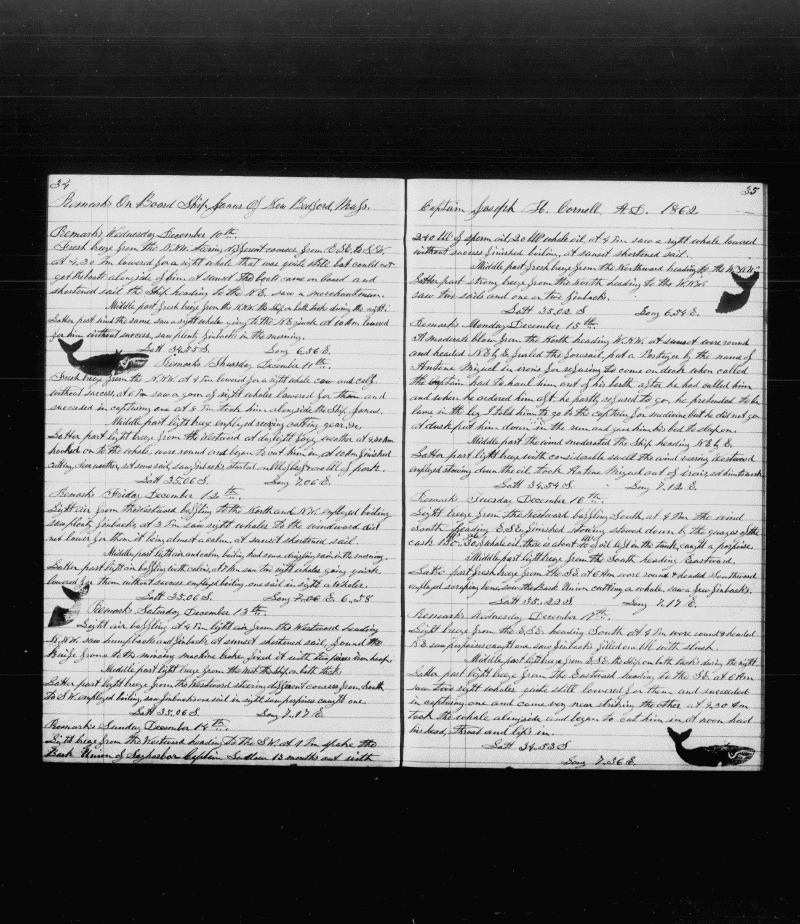 34
Remarks On Board Ship Janus Of New Bedford, Mass.
Remarks Wednesday December 10th.
Fresh breeze from the N.N.W. steering different courses from E.S.E. to S.W.
at 4.30 PM lowered for a right whale that was quite still but could not
get the boats alongside of him at sunset the boats came on board and
shortened sail the Ship heading to the N.E. saw a merchantman.
Middle part fresh breeze from the N.N.W. the Ship on both tacks during the night.
Latter part wind the same saw a right whale going to the N.E. quick at 10 AM lowered
for him without success, saw plenty finbacks in the morning.
Latt 34.55 S. Long 6.56 E.
Remarks Thursday December 11th.
Fresh breeze from the N.N.W. at 4 PM lowered for a right whale cow and calf
without success at 6 PM saw a gam of right whales lowered for them and
succeeded in capturing one at 8 PM took him alongside the Ship Janus.
Middle part light breeze employed reeving cutting gear &c
Latter part light breeze from the Westward at daylight foggy weather at 4.30 AM
hooked on to the whale, wore round and began to cut him in, at 10 AM finished
cutting, fine weather, at same said, saw finbacks started
Latt 35.06 S. Long 7.06 E.
Remarks Friday December 12th.
Light air from the Westward baffling to the North and N.W. employed boiling
saw plenty finbacks, at 3 PM saw right whales to the windward did
not lower for them it being almost a calm at sunset shortened sail.
Middle part light air and calm boiling, had some drizzling rain in the morning.
Latter part light air baffling with calms, at 7 AM saw two right whales going quick
lowered for them without success employed boiling, one sail in sight a whaler.
Latt 35.06 S. Long 7.06 E. 6.58
Remarks Saturday December 13th.
Light air baffling at 4 PM light air from the Westward heading
N.N.W. saw humpbacks and finbacks at sunset shortened sail, found the
knife frame to the mincing machine broke fixed it with
Middle part light breeze from the West the Ship on both tacks
Latter part light breeze from the Westward steering different courses from South
to S.W. employed boiling, saw finbacks one sail in sight saw porpoises caught one.
Latt 35.06 S. Long 7.17 E.
Remarks Sunday December 14th.
Light breeze from the Westward heading to the S.W. at 4 PM spoke the
Bark Union of Sagharbor Captain Ludlow 13 months out with
35
Captain Joseph H. Cornell A.D. 1862
240 bbl of sperm oil 20 bbl whale oil, at 4 PM saw a right whale lowered
without success finished boiling, at sunset shortened sail.
Middle part fresh breeze from the Northward heading to the W.N.W.
Latter part strong breeze from the North heading to the W.N.W.
saw two sails and one or two finbacks.
Latt 35.02 S Long 6.54 E.
Remarks Monday December 15th.
A moderate blow from the North heading W.N.W. at sunset wore round
and headed N.E. by E. furled the foresail, put a Portugee by the name of
Antone Miguel in irons for refusing to come on deck when called
the Captain had to haul him out of his berth after he had called him
and when he ordered him aft he partly refused to go, he pretended to be
lame in the leg I told him to go to the Captain for medicine but he did not go
at dusk put him down in the run and gave him his bed to sleep on.
Middle part the wind moderated the Ship heading N.E. by E.
Latter part light breeze with considerable swell the wind veering Westward
employed stowing down the oil took Antone Miguel out of irons
Latt 34.54 S. Long 7.12 E.
Remarks Tuesday December 16th.
Light breeze from the Westward baffling South at 4 PM the wind
South heading E.S.E. finished stowing stowed down by the gauges of the
cask whale oil, there is about bbl oil left in the tank, caught a porpoise.
Middle part light breeze from the South heading Eastward.
Latter part fresh breeze from the S.E. at 6 AM wore round & headed Southward
employed scraping bone, saw the Bark Union cutting a whale, saw a few finbacks.
Latt 35.22 S Long 7.17 E.
Remarks Wednesday December 17th.
Light breeze from the E.S.E. heading South at 4 PM wore round & headed
N.E. saw porpoises caught one saw finbacks filled one bbl with slush.
Middle part light breeze from E.S.E. the Ship on both tacks during the night.
Latter part light breeze from the Eastward heading to the S.E. at 6 AM
saw two right whales quite still lowered for them and succeeded
in capturing one and came very near striking the other at 9.30 AM
took the whale alongside and began to cut him in at noon had
his head, throat and lips in.
Latt 34.53 S
Long 7.36 E.